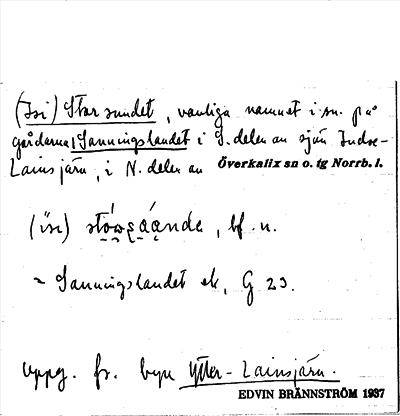 (Isi) Storsundet, vanliga namnet i sn. på
gårdarna, Sanningslandet i S. delen av sjön Indre-
Lainsjärv, i N. delen av Överkalix sn o. tg Norrb. l.
(isi) , bf. n.
= Sanningslandet ek, G 23.
Uppg. fr. byn Ytter-Lainsjärv.
EDVIN BRÄNNSTRÖM 1937